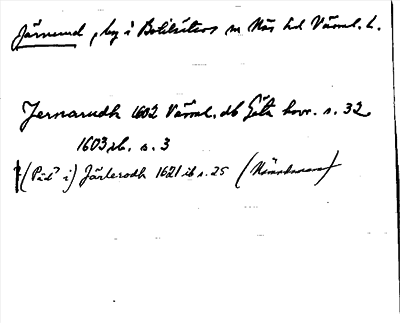 Järnrud, by i Botilsäters sn Näs hd Värml. l.
Jernarudh 1602 Värml. db Göta hovr. s. 32
1603 ib. s. 3
(Påd? i) Järlerodh 1621 ib s. 25